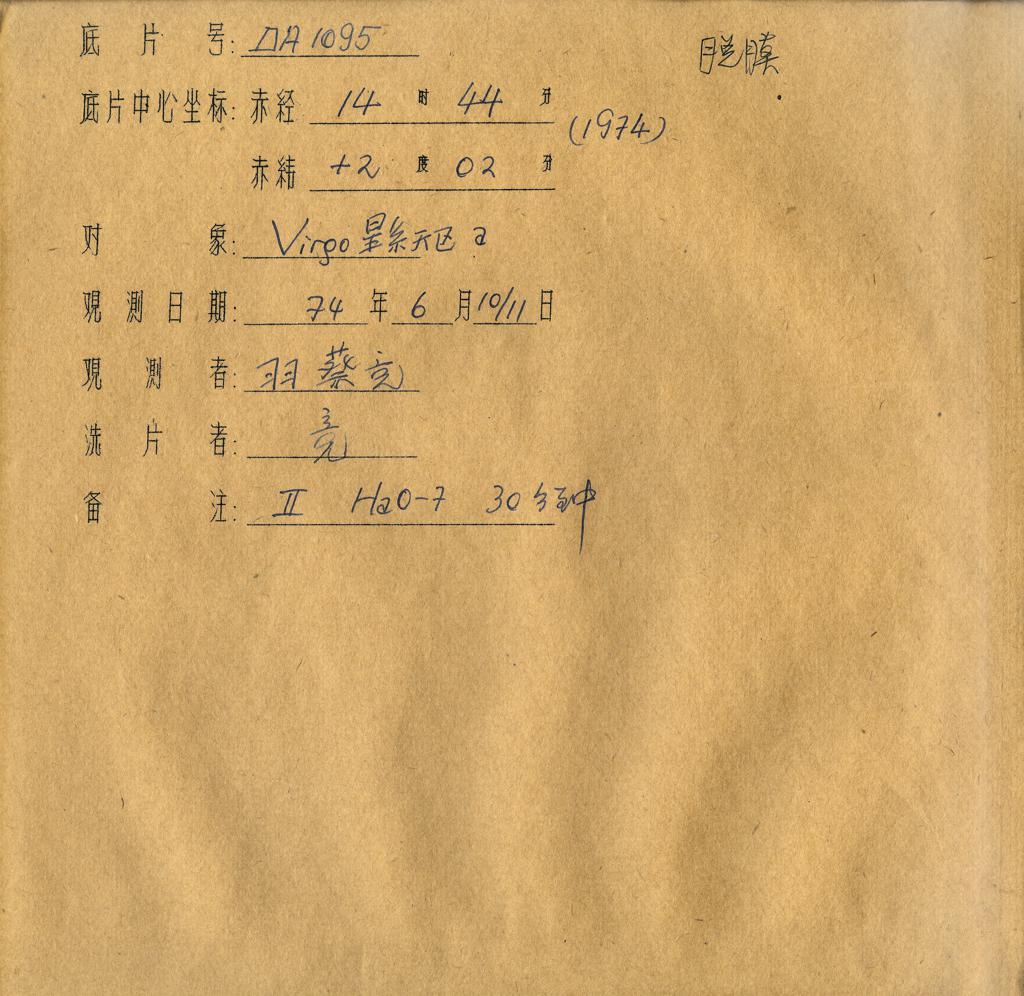 底片号: DA1095
脱膜
底片中心坐标: 赤经 14 时 44 分
(1974)
赤纬 +2 度 02 分
对象: Virgo 星系天区 a
观测日期: 74 年 6 月 10/11 日
观测者: 羽 蔡 亮
洗片者: 亮
备注: II HaO-7 30分钟